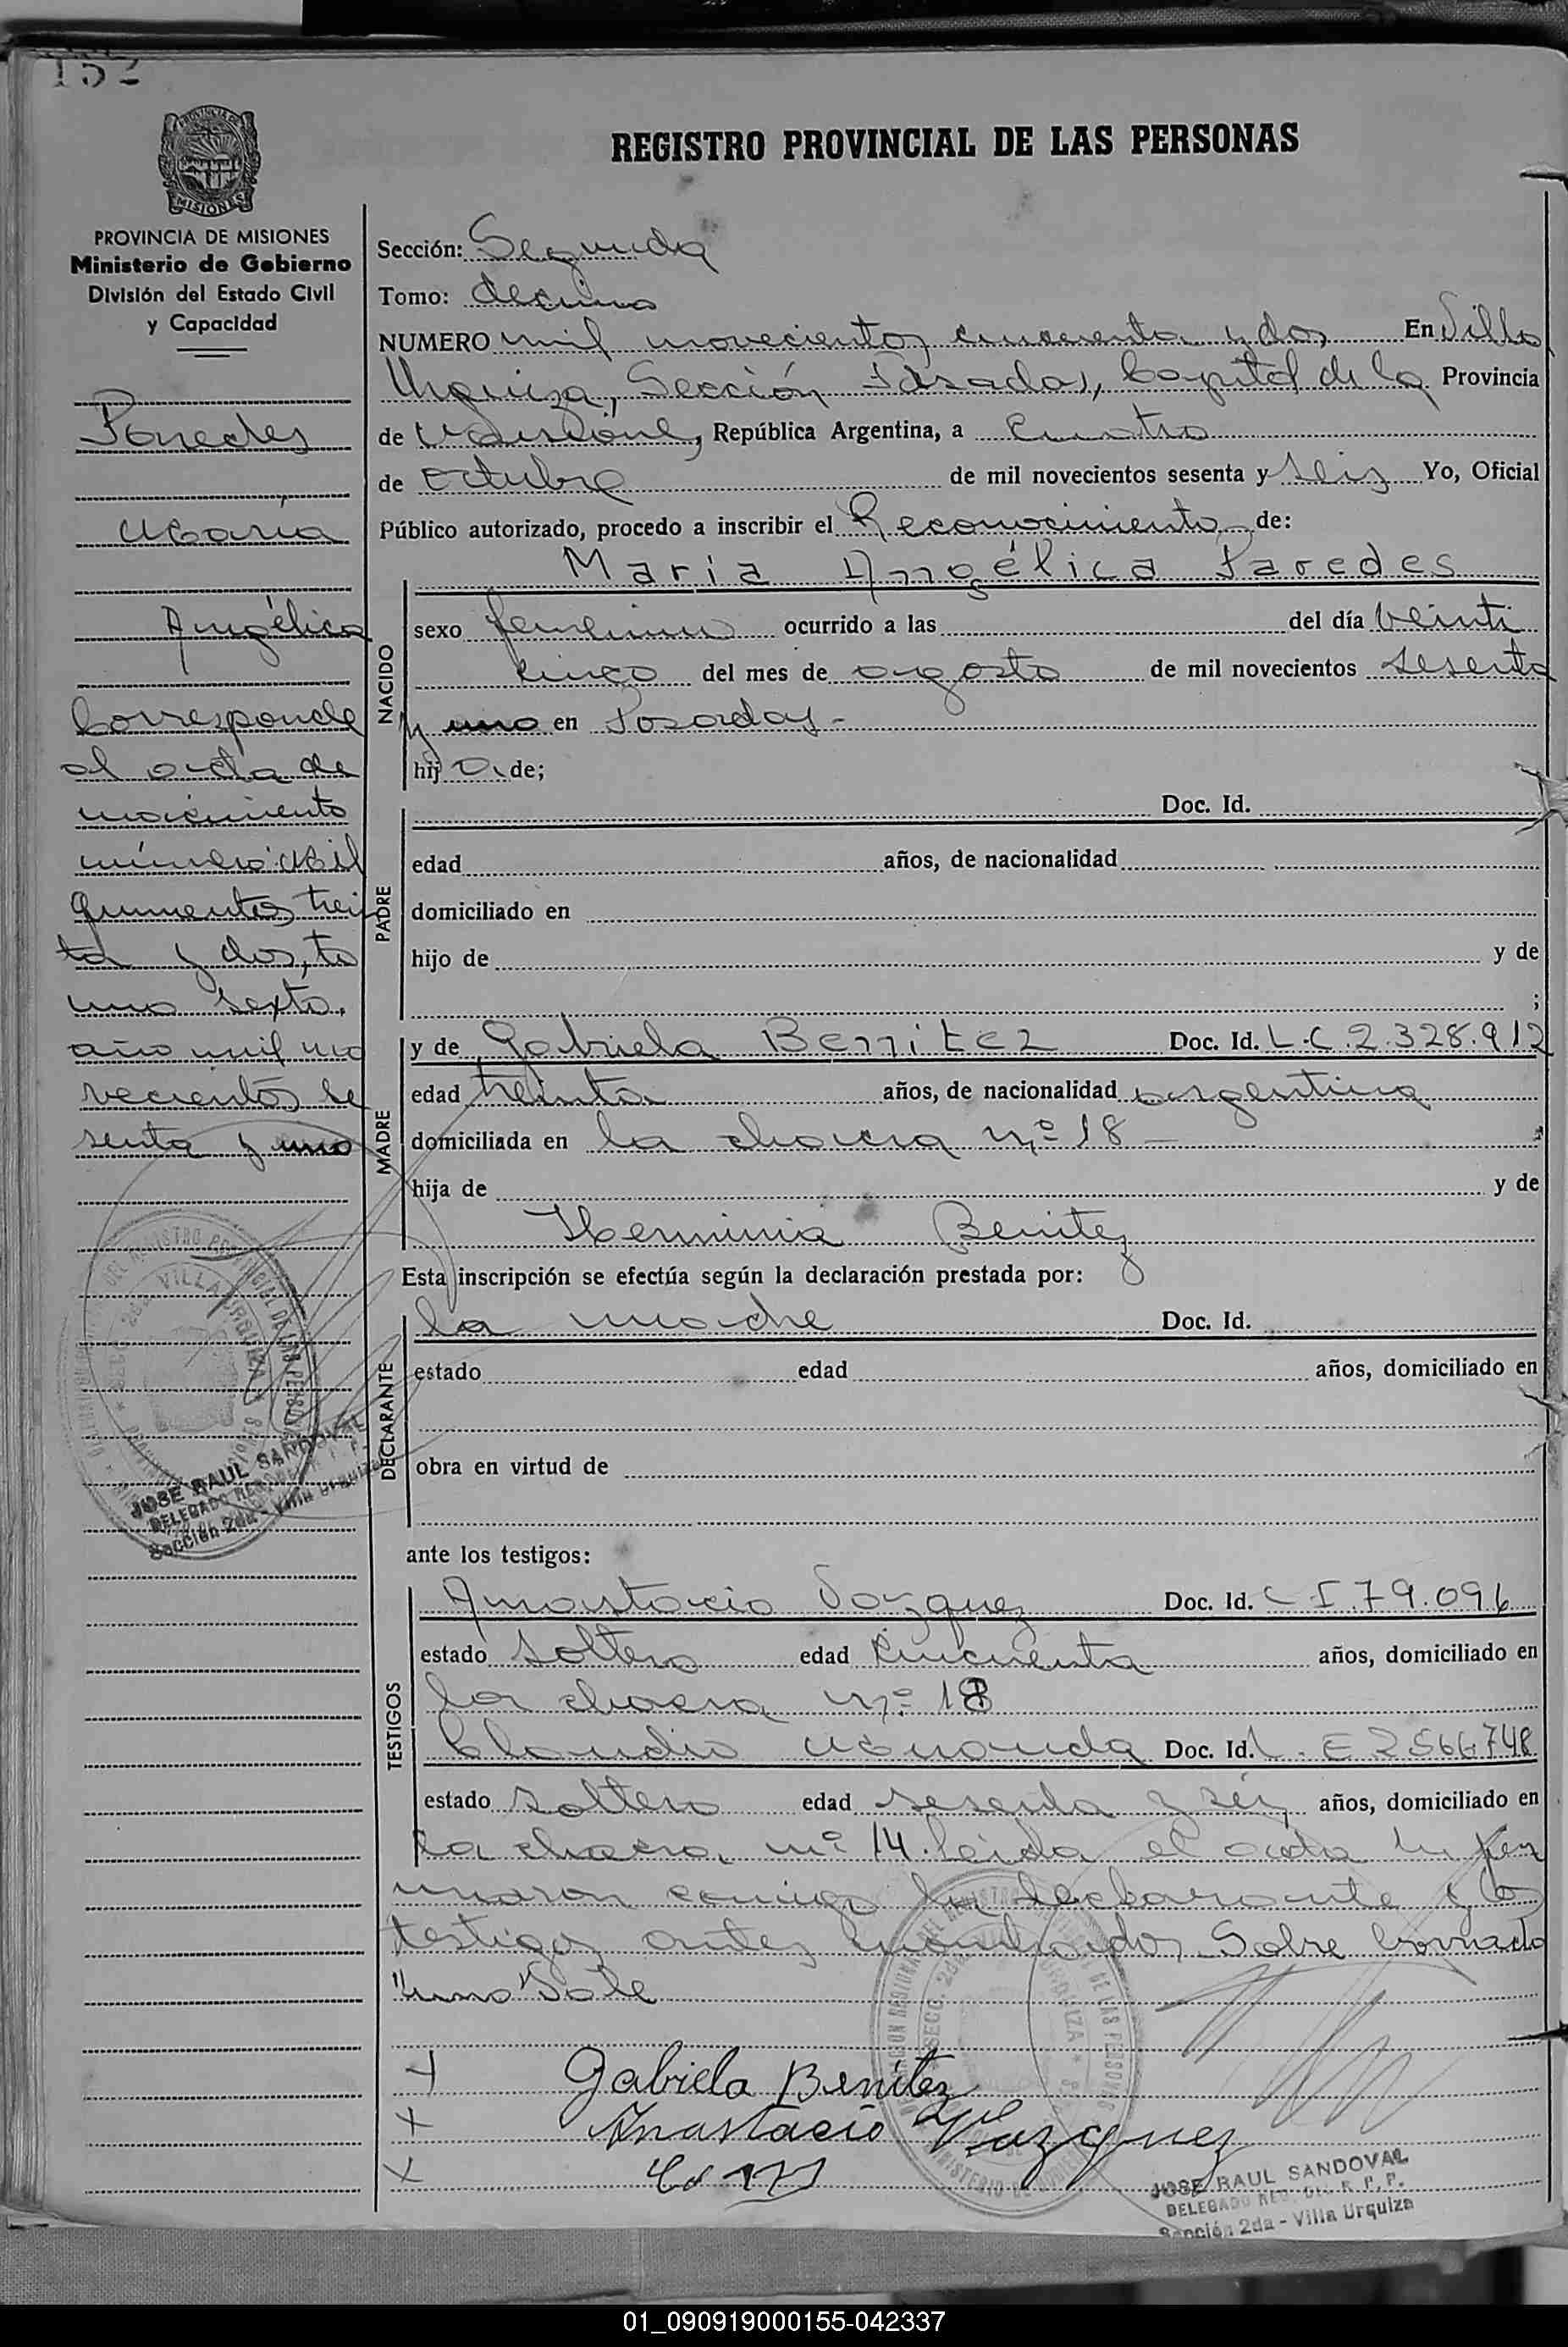 152
PROVINCIA DE
MISIONES
PROVINCIA DE MISIONES
Ministerio de Gobierno
División del Estado Civil
y Capacidad
Paredes
Maria
Angélica
Corresponde
al acta de
nacimiento
número Mil
quinientos trein
ta y dos, to
mo sexto,
año mil no
vecientos se
senta y uno
VILLA URQUIZA
JOSE RAUL SANDOVAL
DELEGADO REG.
Sección 2da - Villa Urquiza
REGISTRO PROVINCIAL DE LAS PERSONAS
Sección: Segunda
Tomo: decimo
NUMERO mil novecientos cincuenta y dos En Villa
Urquiza, Sección Posadas, Capital de la Provincia
de Misiones, República Argentina, a Cuatro
de Octubre de mil novecientos sesenta y seis Yo, Oficial
Público autorizado, procedo a inscribir el Reconocimiento de:
María Angélica Paredes
NACIDO
sexo femenino ocurrido a las del día veinti
cinco del mes de agosto de mil novecientos sesenta
y uno en Posadas-
hij a de;
PADRE
Doc. Id.
edad años, de nacionalidad
domiciliado en
hijo de y de
;
MADRE
y de Gabriela Benitez Doc. Id. L.C.2.328.912
edad treinta años, de nacionalidad argentina
domiciliada en la chacra nº 18 -
hija de y de
Herminia Benitez
Esta inscripción se efectúa según la declaración prestada por:
DECLARANTE
la madre Doc. Id.
estado edad años, domiciliado en
obra en virtud de
ante los testigos:
TESTIGOS
Anastacio Vazquez Doc. Id. C I.79.096
estado soltero edad cincuenta años, domiciliado en
la chacra nº 18
Claudio Miranda Doc. Id. L. E 2566748
estado soltero edad sesenta y seis años, domiciliado en
la chacra nº 14. leida el acta la fir
maron conmigo la declarante y los
testigos antes nombrados. Sobre borrado
"uno" Vale
Gabriela Benitez
Anastacio Vazquez
JOSE RAUL SANDOVAL
DELEGADO REG. R. P. P.
Sección 2da - Villa Urquiza
01_090919000155-042337